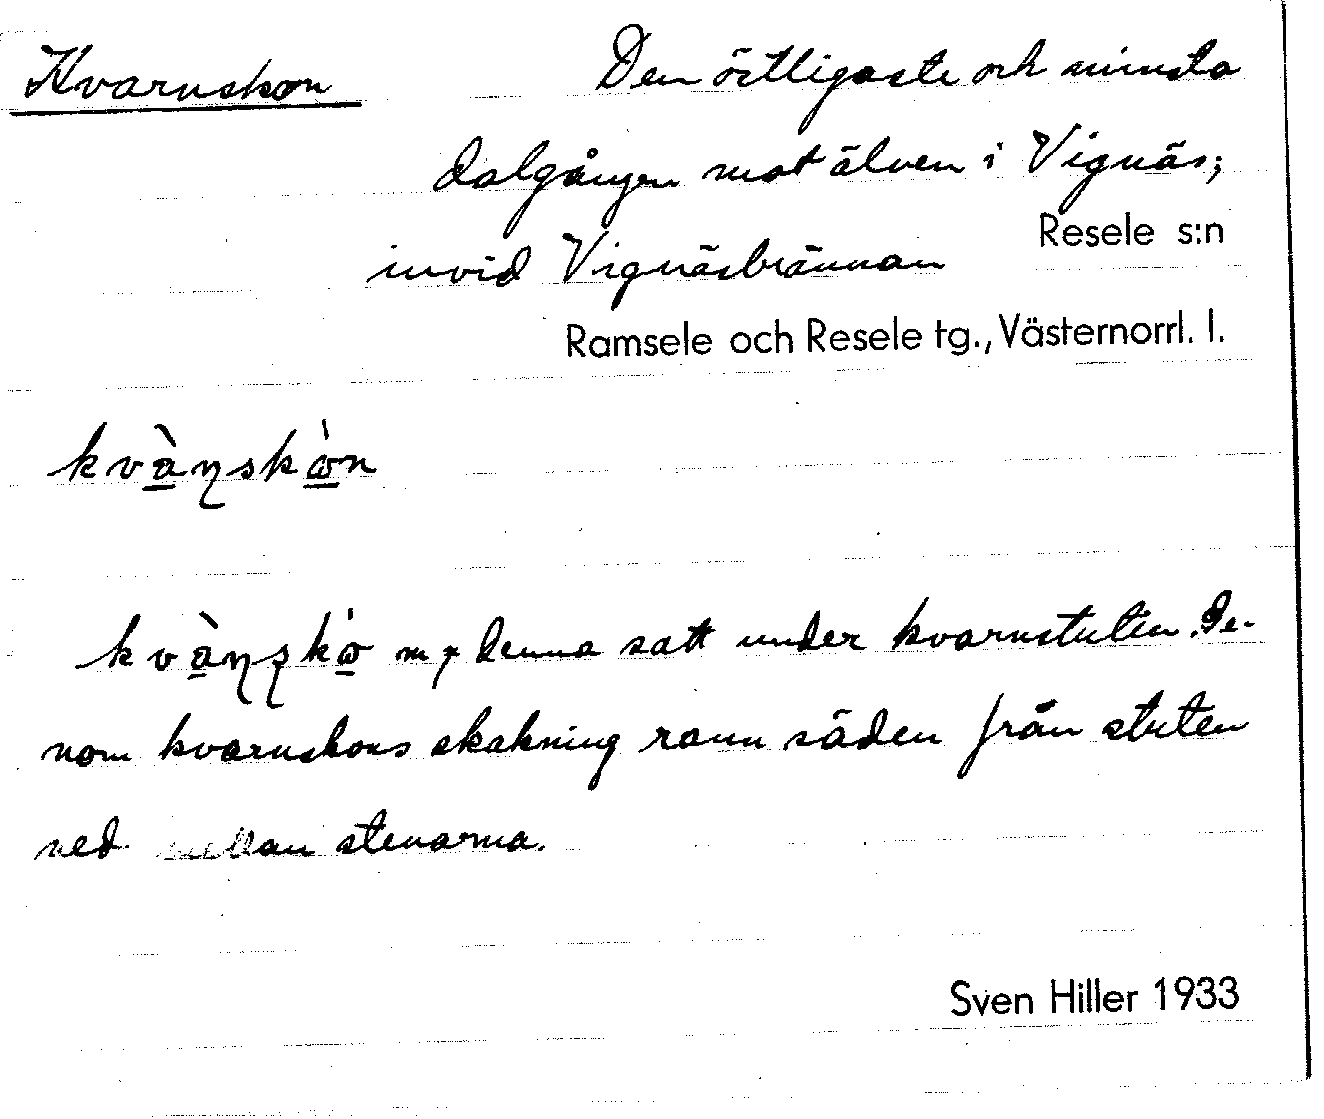 Kvarnskon Den östligaste och minsta
dalgången mot älven i Vignäs;
Resele s:n
invid Vignäsbrännan
Ramsele och Resele tg., Västernorrl. l.
kvànskòn
kvànskò m; denna satt under kvarnstuten. Ge-
nom kvarnskons skakning rann säden från stuten
ned mellan stenarna.
Sven Hiller 1933